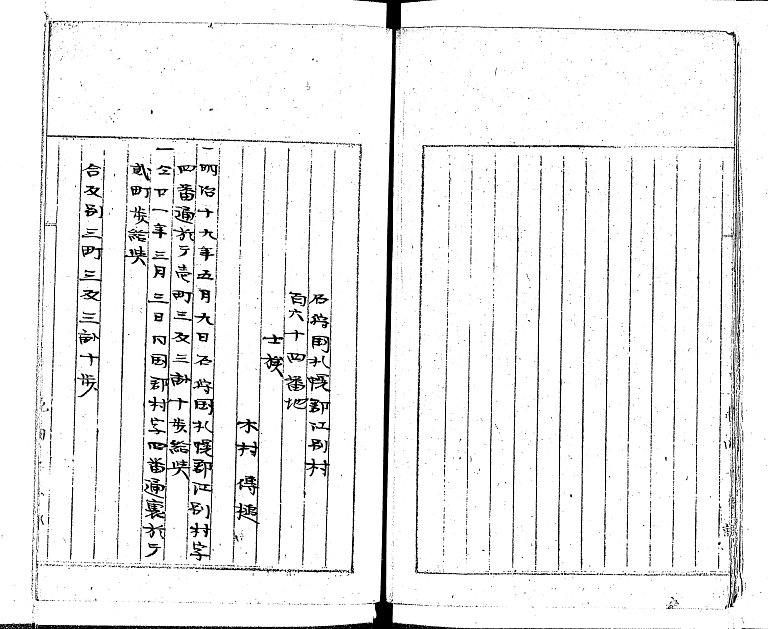 石狩国札幌郡江別村
百六十四番地
士族
木村 傳
一明治十九年五月九日石狩国札幌郡江別村字
四番通於テ壱町三反三畝十歩給与
一仝廿一年三月三日同国郡村字四番通裏於テ
貳町歩給与
合反別三町三反三畝十歩